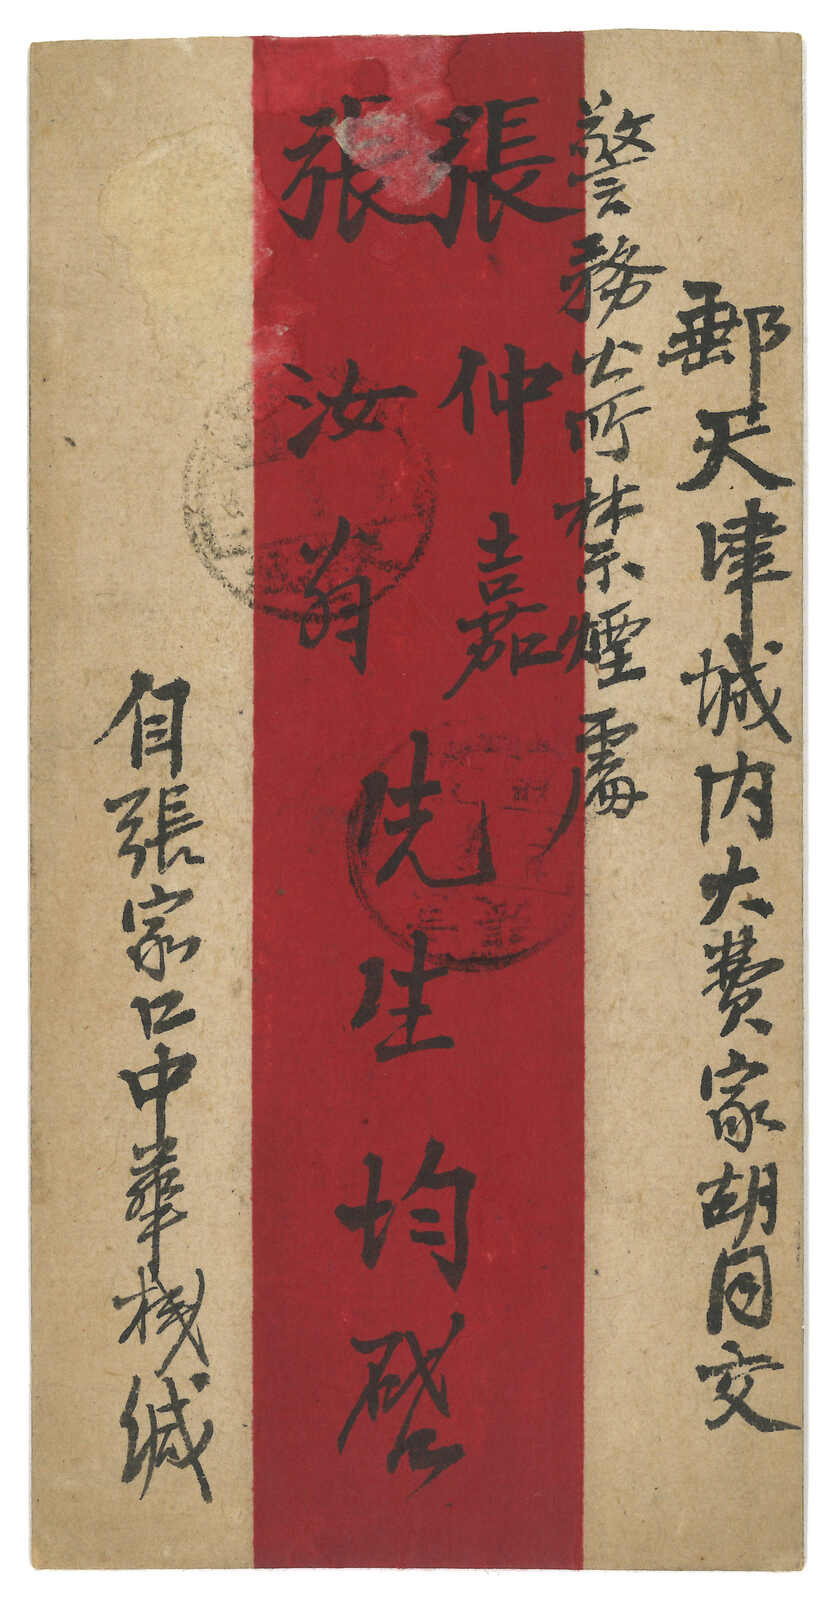 郵天津城内大費家胡同交
警務公所禁煙處
張仲嘉
張汝翁
先生均啓
自張家口中華棧緘